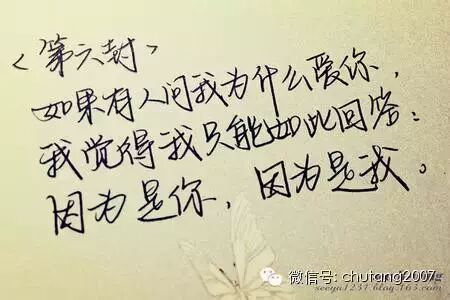 <第六封>
如果有人问我为什么爱你,
我觉得我只能如此回答:
因为是你,因为是我。
微信号: chutang2007
seeyu1231.blog.163.com